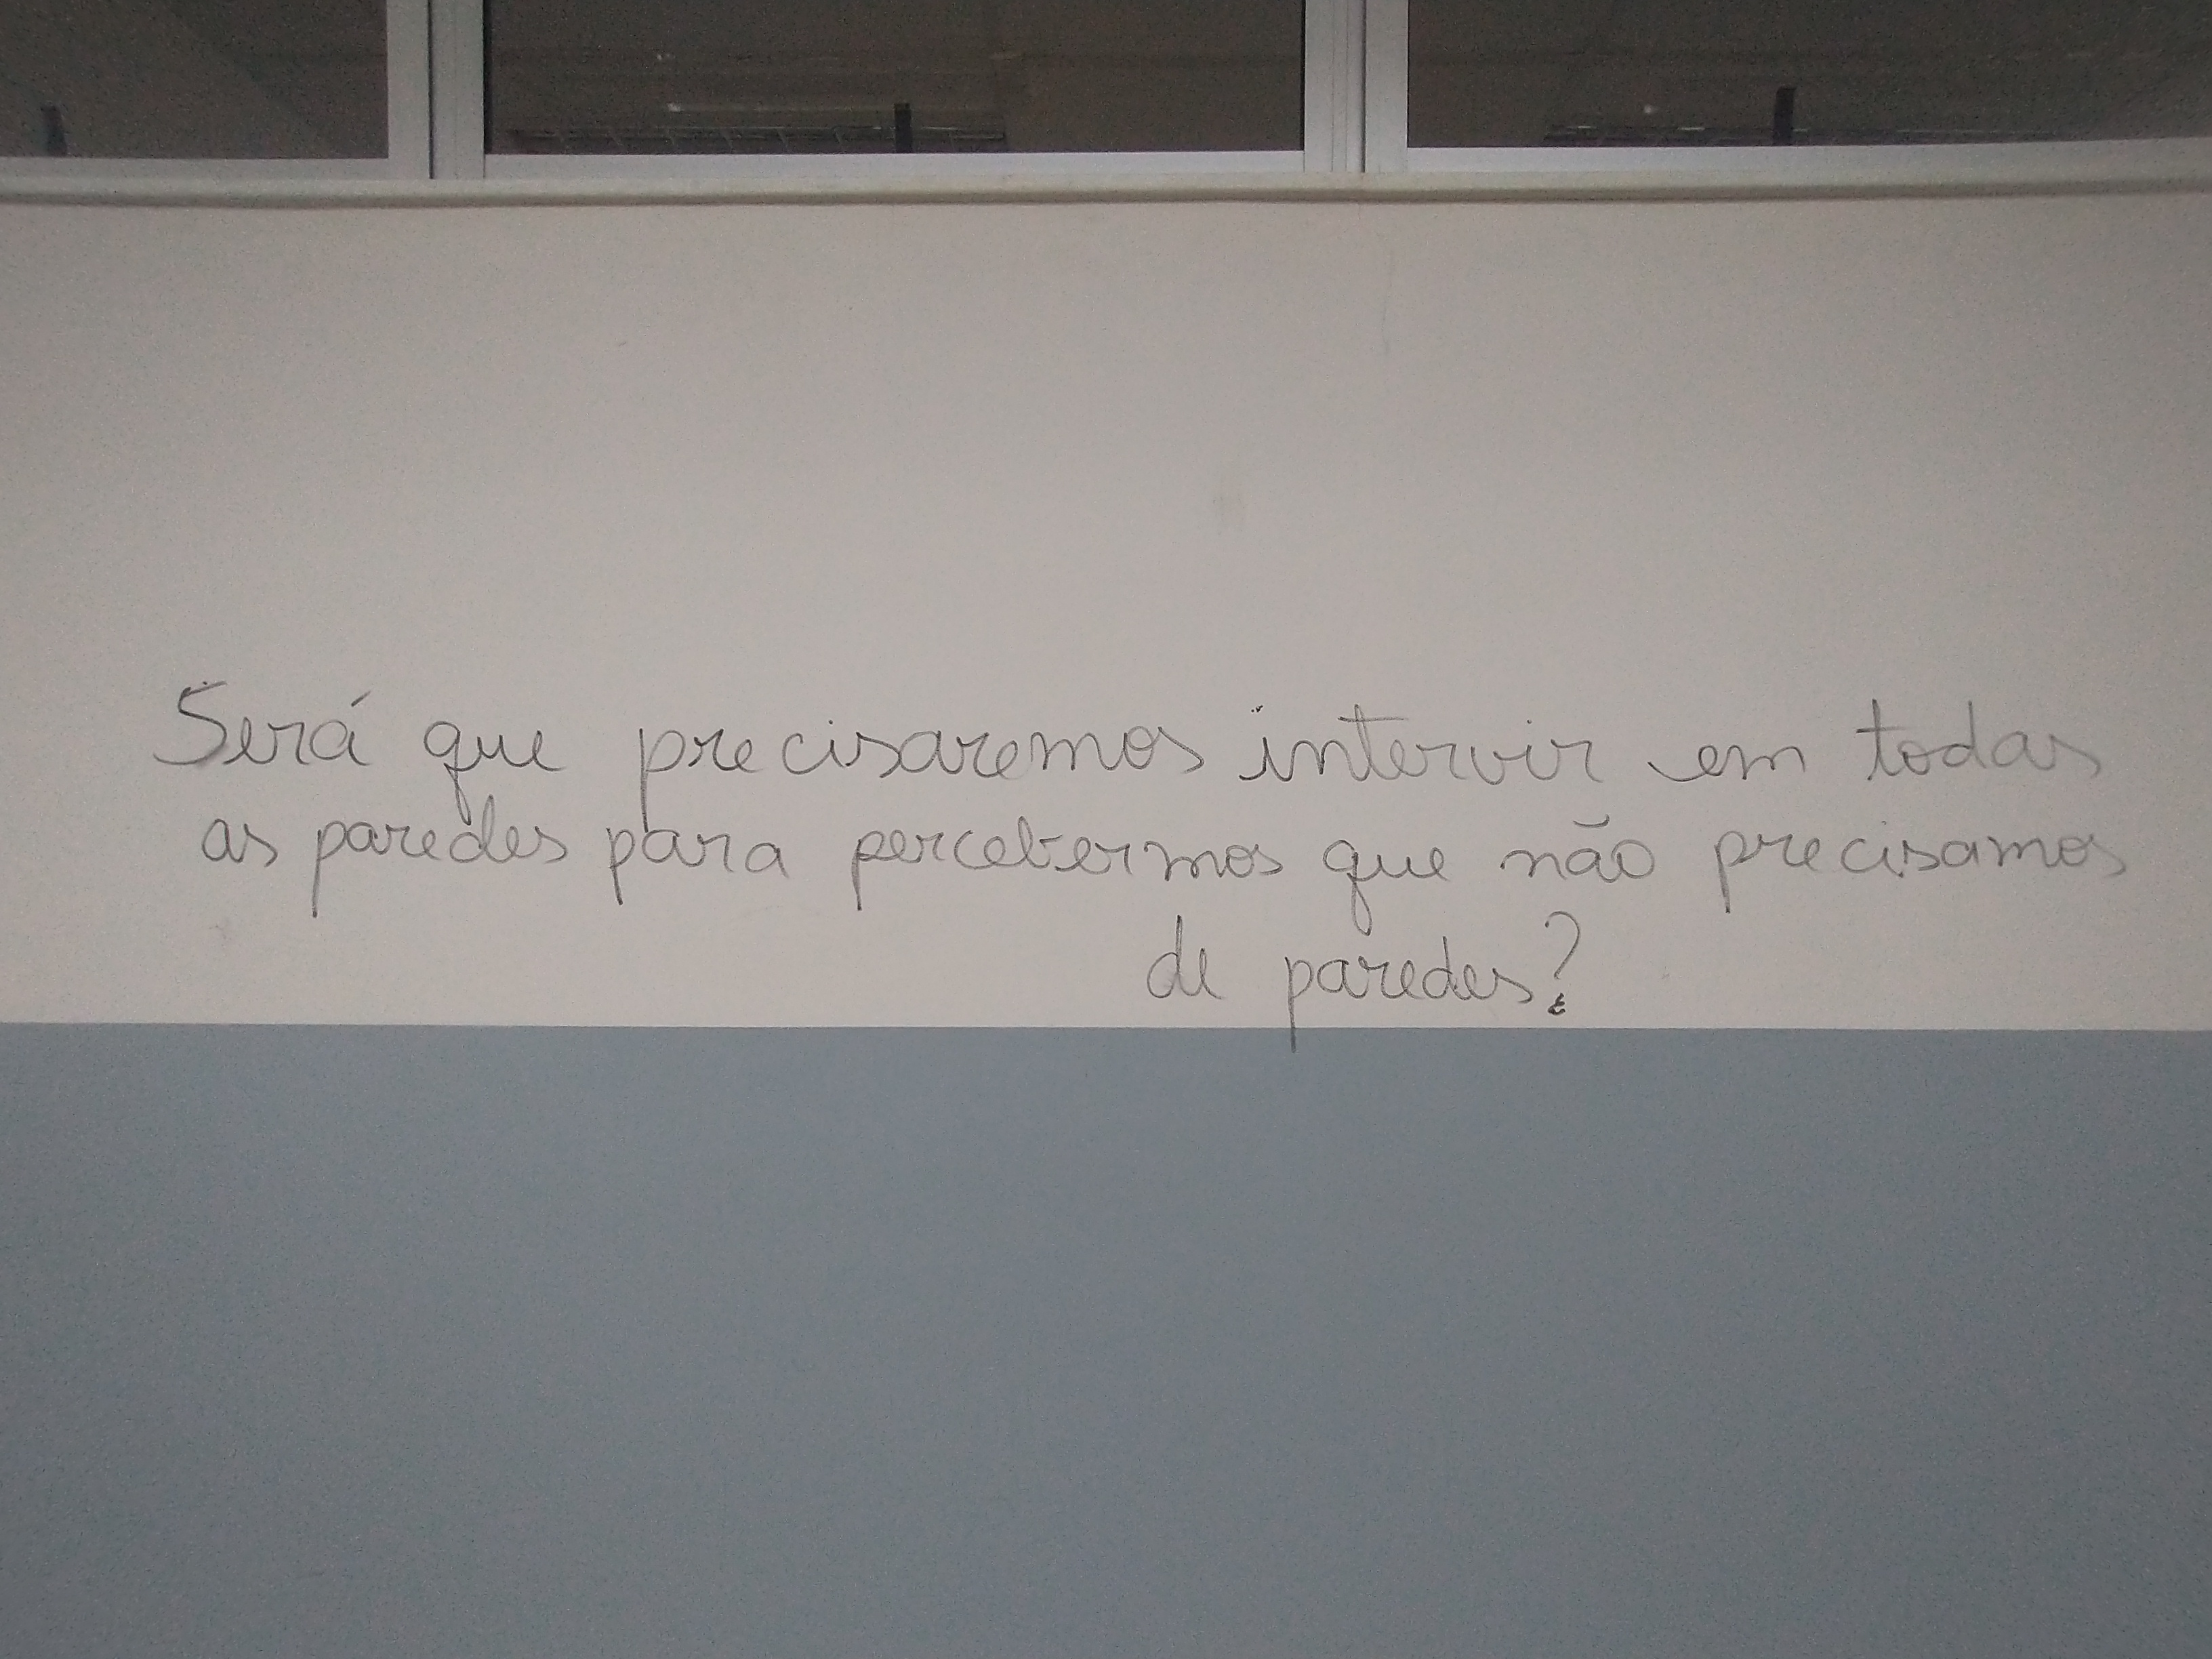 Será que precisaremos intervir em todas
as paredes para percebermos que não precisamos
de paredes?